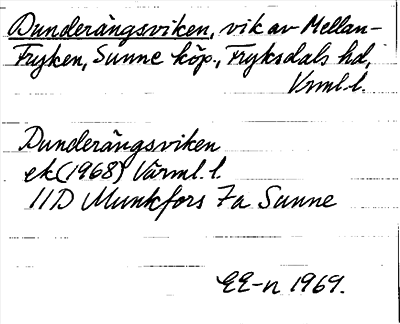 Dunderängsviken, vik av Mellan-
Fryken, Sunne köp., Fryksdals hd,
Vrml.l.
Dunderängsviken
ek (1968) Värml. l.
11D Munkfors 7a Sunne
EE-n 1969.